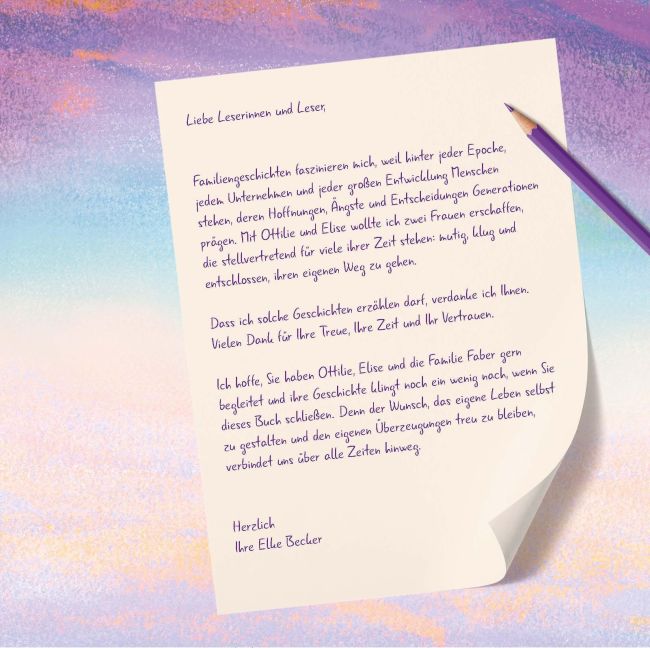 Liebe Leserinnen und Leser,
Familiengeschichten faszinieren mich, weil hinter jeder Epoche,
jedem Unternehmen und jeder großen Entwicklung Menschen
stehen, deren Hoffnungen, Ängste und Entscheidungen Generationen
prägen. Mit Ottilie und Elise wollte ich zwei Frauen erschaffen,
die stellvertretend für viele ihrer Zeit stehen: mutig, klug und
entschlossen, ihren eigenen Weg zu gehen.
Dass ich solche Geschichten erzählen darf, verdanke ich Ihnen.
Vielen Dank für Ihre Treue, Ihre Zeit und Ihr Vertrauen.
Ich hoffe, Sie haben Ottilie, Elise und die Familie Faber gern
begleitet und ihre Geschichte klingt noch ein wenig nach, wenn Sie
dieses Buch schließen. Denn der Wunsch, das eigene Leben selbst
zu gestalten und den eigenen Überzeugungen treu zu bleiben,
verbindet uns über alle Zeiten hinweg.
Herzlich
Ihre Elke Becker